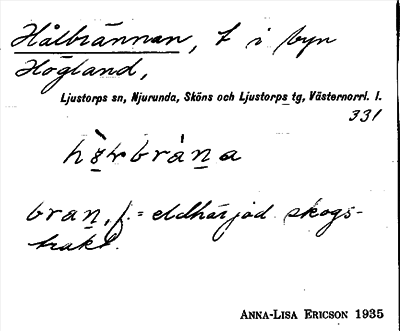 Hålbrännan, t i byn
Högland,
Ljustorps sn, Njurunda, Sköns och Ljustorps tg, Västernorrl. l.
331
bran, f. = eldhärjad skogs-
trakt.
ANNA-LISA ERICSON 1935